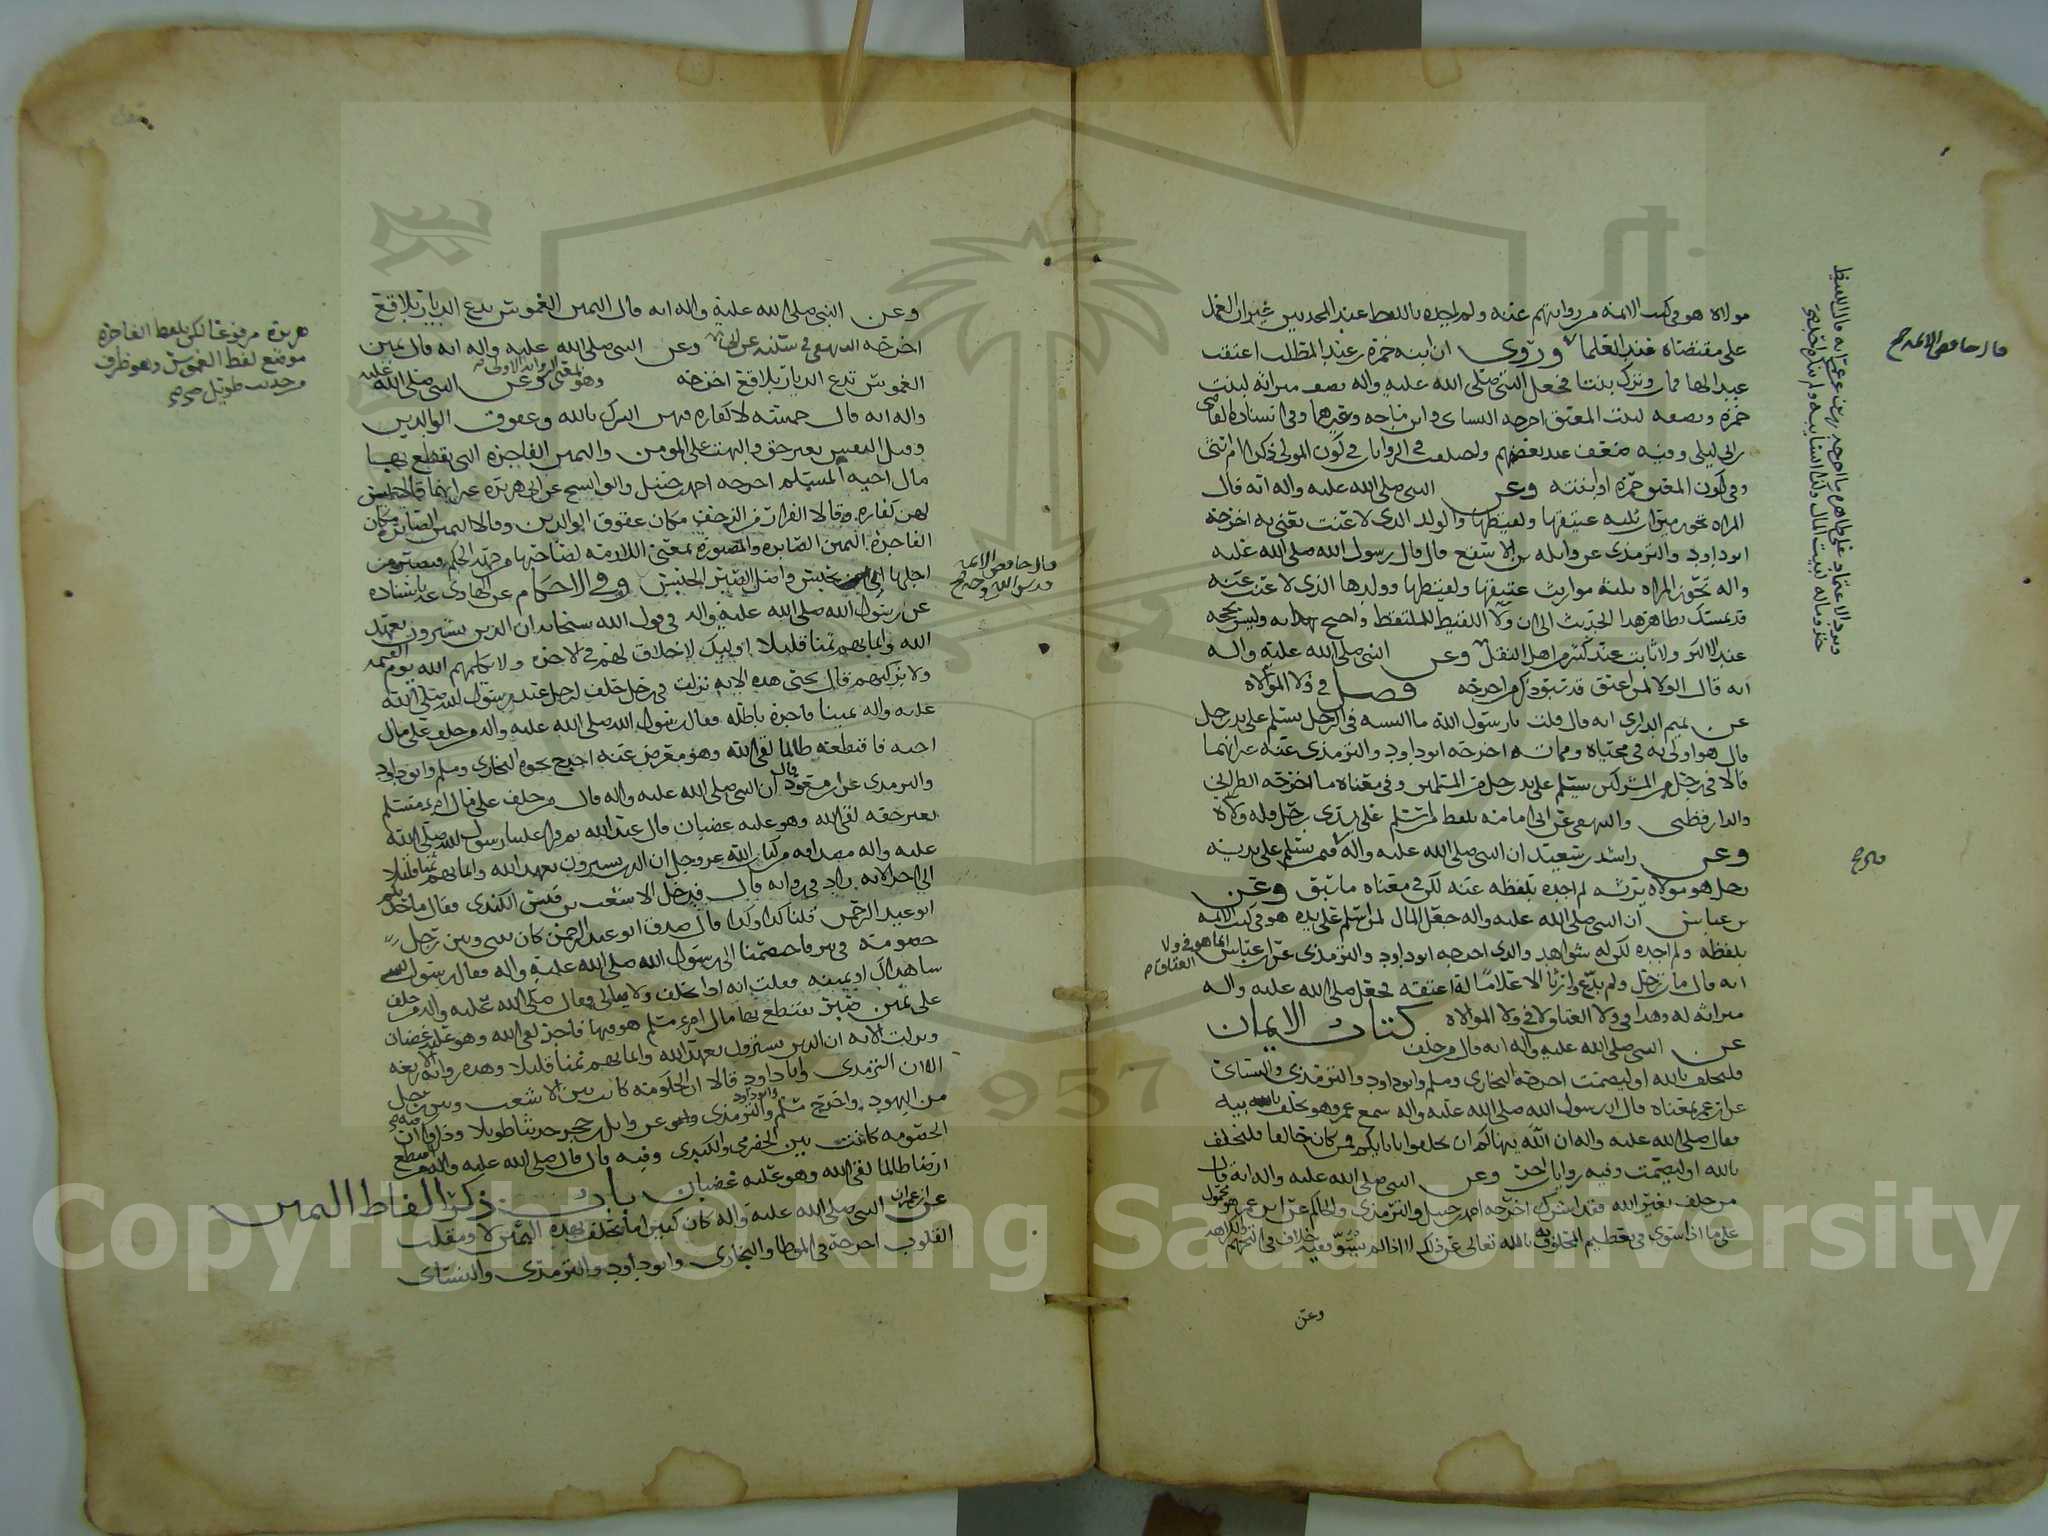 مولاه هو في كتب الائمة من رواياتهم عنه ولم اجده باللفظ عند المحدثين غير ان العمل
على مقتضاه عند العلماء وروي ان ابنة حمزة بن عبد المطلب اعتقت
عبدا لها فمات وترك بنتا فجعل النبي صلى الله عليه واله نصف ميراثه لبنت
حمزة ونصفه لبنت المعتق اخرجه النسائي وابن ماجه وغيرهما وفي اسناده القاضي
بن ابي ليلى وفيه ضعف عند بعضهم واختلفت الروايات في كون المولى ذكرا ام انثى
وفي كون المعتق حمزة او ابنته وعن النبي صلى الله عليه واله انه قال
المراه تحوز ميراث عتيقها ولقيطها والولد الذي لاعنت تعني به اخرجه
ابو داود والترمذي عن واثلة بن الاسقع قال قال رسول الله صلى الله عليه
واله تحوز المراه ثلثة مواريث عتيقها ولقيطها وولدها الذي لاعنت عنه
قد تمسك بظاهر هذا الحديث الى ان ولاء اللقيط للملتقط واحتج بهذا به وليس بحجه
عند الاكثر ولا ثابت عند كثير من اهل النقل وعن النبي صلى الله عليه واله
انه قال الولا لمن اعتق قد تقدم ذكر من اخرجه فصل في ولا الموالاه
عن تميم الداري انه قال قلت يا رسول الله ما السنه في الرجل يسلم على يد رجل
قال هو اولى به في محياه ومماته اخرجه ابو داود والترمذي عنه غير انهما
قالا في رجل من المشركين يسلم على يد رجل من المسلمين وفي معناه ما اخرجه الطبراني
والدارقطني والبيهقي عن ابي امامة بلفظ من اسلم على يدي رجل فله ولاه
وعن راشد بن سعيد ان النبي صلى الله عليه واله قال من يسلم على يديه
رجل هو مولاه يرثه لم اجده بلفظه عنه لكن في معناه ما سبق وعن
بن عباس ان النبي صلى الله عليه واله جعل المال لمن اسلم على يده هو في كتب الائمه
بلفظه ولم اجده لكن له شواهد والذي اخرجه ابو داود والترمذي عن ابن عباس انما هو في ولا العتاق
انه قال مات رجل ولم يدع وارثا الا غلاما له اعتقه فجعل صلى الله عليه واله
ميراثه له وهذا في ولا العتاق لا في ولا الموالاه كتاب الايمان
عن النبي صلى الله عليه واله انه قال من حلف
فليحلف بالله او ليصمت اخرجه البخاري ومسلم وابو داود والترمذي والنسائي
عن ابن عمر بمعناه قال ان رسول الله صلى الله عليه واله سمع عمر وهو يحلف بابيه
فقال صلى الله عليه واله ان الله ينهاكم ان تحلفوا بابائكم فمن كان حالفا فليحلف
بالله او ليصمت وفيه روايات اخر وعن النبي صلى الله عليه واله انه قال
من حلف بغير الله فقد اشرك اخرجه احمد بن حنبل والترمذي والحاكم عن ابن عمر وهو محمول
على ما اذا سوى في تعظيم المحلوف به بالله تعالى عن ذلك
وعن
قال حافظ الائمه
وعن النبي صلى الله عليه واله انه قال اليمين الغموس تدع الديار بلاقع
اخرجه البيهقي في سننه وعن النبي صلى الله عليه واله انه قال يمين
الغموس تدع الديار بلاقع اخرجه وهو بمعنى الرواية الاولى وعن النبي صلى الله عليه
واله انه قال خمسة لا كفارة فيهن الشرك بالله وعقوق الوالدين
وقتل النفس بغير حق والبهت على المومن واليمين الفاجره التي يقطع بها
مال اخيه المسلم اخرجه احمد بن حنبل وابو الشيخ عن ابي هريره غير انهما قالا خمس ليس
لهن كفاره وقالا الفرار من الزحف مكان عقوق الوالدين وقالا اليمين الصابره مكان
الفاجره اليمين الصابره والمصبوره بمعنى اللازمه لصاحبها من جهة الحكم فيصبر من
اجلها اي يحبس واصل الصبر الحبس وفي الاحكام عن الهادي باسناده
عن رسول الله صلى الله عليه واله في قول الله سبحانه ان الذين يشترون بعهد
الله وايمانهم ثمنا قليلا اوليك لا خلاق لهم في الاخره ولا يكلمهم الله يوم القيمه
ولا يزكيهم قال يحيى هذه الايه نزلت في رجل حلف لرجل عند رسول الله صلى الله
عليه واله يمينا فاجره باطله فقال رسول الله صلى الله عليه واله من حلف على مال
اخيه فاقتطعه ظالما لقي الله وهو معرض عنه اخرج نحوه البخاري ومسلم وابو داود
والترمذي عن ابن مسعود قال ان النبي صلى الله عليه واله قال من حلف على مال امرء مسلم
بغير حقه لقي الله وهو عليه غضبان قال عبد الله ثم قرا علينا رسول الله صلى الله
عليه واله مصداقه من كتاب الله عز وجل ان الذين يشترون بعهد الله وايمانهم ثمنا قليلا
الى اخر الايه زاد في روايه قال فدخل الاشعث بن قيس الكندي فقال ما حدثكم
ابو عبد الرحمن قلنا كذا وكذا قال صدق ابو عبد الرحمن كان بيني وبين رجل
خصومه في بير فاختصمنا الى رسول الله صلى الله عليه واله فقال رسول الله
شاهداك او يمينه فقلت انه اذا يحلف ولا يبالي فقال صلى الله عليه واله من حلف
على يمين صبر يقتطع بها مال امرء مسلم هو فيها فاجر لقي الله وهو عليه غضبان
ونزلت الايه ان الذين يشترون بعهد الله وايمانهم ثمنا قليلا وهذه رواية الاربعه
الا ان الترمذي وابا داود قالا ان الحكومة كانت بين الاشعث وبين رجل
من اليهود واخرج مسلم والترمذي وابو داود عن وايل بن حجر حديثا طويلا
الخصومه كانت بين الحضرمي والكندي وفيه قال قال صلى الله عليه واله من اقتطع
ارضا ظالما لقي الله وهو عليه غضبان باب ذكر الفاظ اليمين
عن ابن عمر ان النبي صلى الله عليه واله كان كثيرا ما يحلف بهذه اليمين لا ومقلب
القلوب اخرجه في الموطا والبخاري وابو داود والترمذي والنسائي
قال حافظ الائمه
قدس الله روحه
هريرة مرفوعا لكن بلفظ الفاجره
موضع لفظ الغموس وهو طرف
من حديث طويل
1957
Copyright © King Saud University